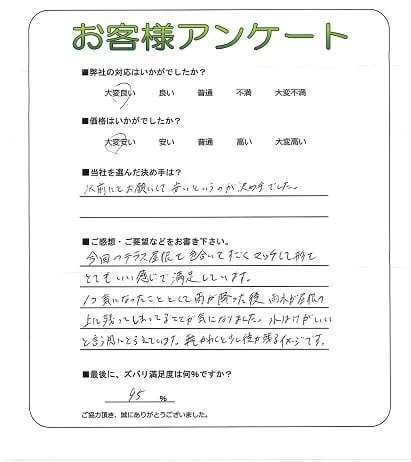 お客様アンケート
■弊社の対応はいかがでしたか?
大変良い 良い 普通 不満 大変不満
■価格はいかがでしたか?
大変安い 安い 普通 高い 大変高い
■当社を選んだ決め手は?
以前にもお願いして安いというのが決め手でした。
■ご感想・ご要望などをお書き下さい。
今回のテラス屋根も色合いすごくマッチして
とてもいい感じで満足しています。
1つ気になったこととして雨が降った後 雨水が屋根の
上に残ってしまってることが気になりました。水はけがいい
と言う風にとらえています。乾かわくと少し後が残るイメージです。
■最後に、ズバリ満足度は何%ですか?
95 %
ご協力頂き、誠にありがとうございました。